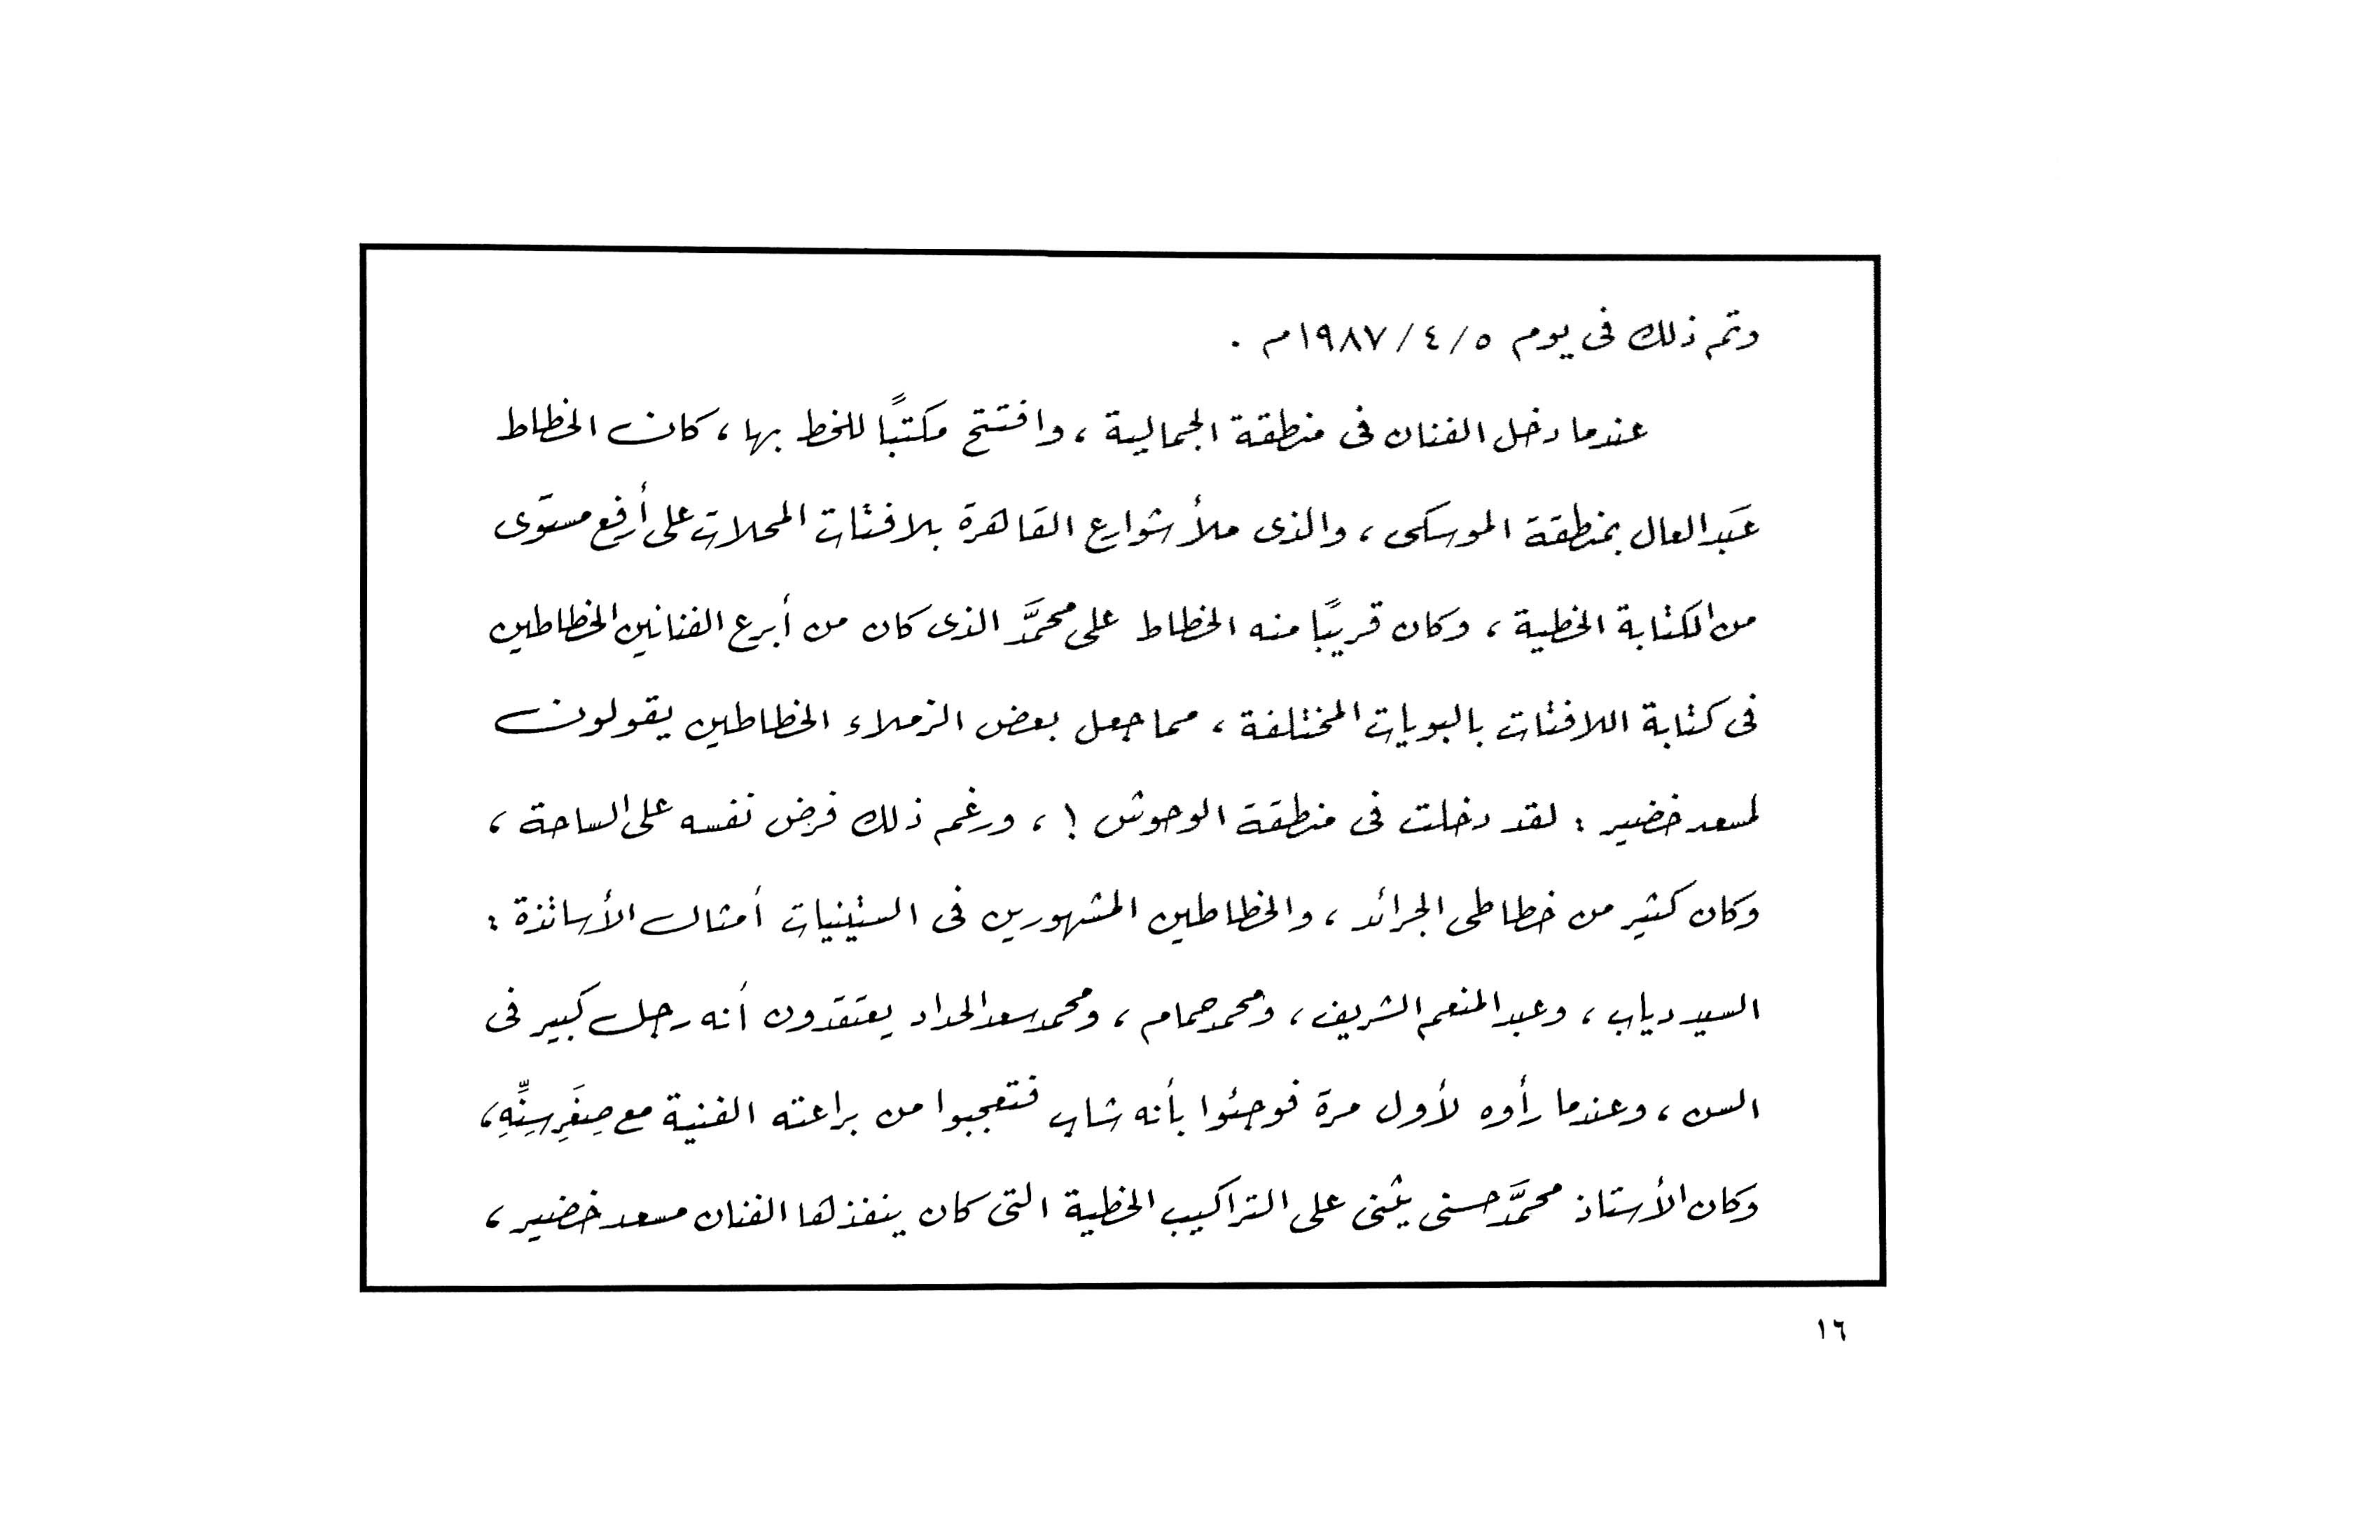 وتم ذلك فى يوم ٥/٤/١٩٨٧م .
عندما دخل الفنان فى منطقة الجمالية ، وافتتح مكتبًا للخط بها ، كان الخطاط
عَبد العال بمنطقة الموسكى ، والذى ملأ شوارع القاهرة بلافتات المحلات على أرفع مستوَى
من الكتابة الخطية ، وكان قريبًا منه الخطاط على محمَّد الذى كان من أبرع الفنانين الخطاطين
فى كتابة اللافتات بالبويات المختلفة ، مما جعل بعض الزملاء الخطاطين يقولون
لمسعد خضير : لقد دخلت فى منطقة الوحوش ! ، ورغم ذلك فرض نفسه على الساحة ،
وكان كثير من خطاطى الجرائد ، والخطاطين المشهورين فى الستينيات أمثال الأساتذة :
السيد دياب ، وعبد المنعم الشريف ، ومحمد همام ، ومحمد سعد الحداد يعتقدون أنه رجل كبير فى
السن ، وعندما رأوه لأول مرة فوجئوا بأنه شاب فتعجبوا من براعته الفنية مع صِغَرِ سِنِّهِ ،
وكان الأستاذ محمَّد حسنى يثنى على التراكيب الخطية التى كان ينفذها الفنان مسعد خضير ،
١٦